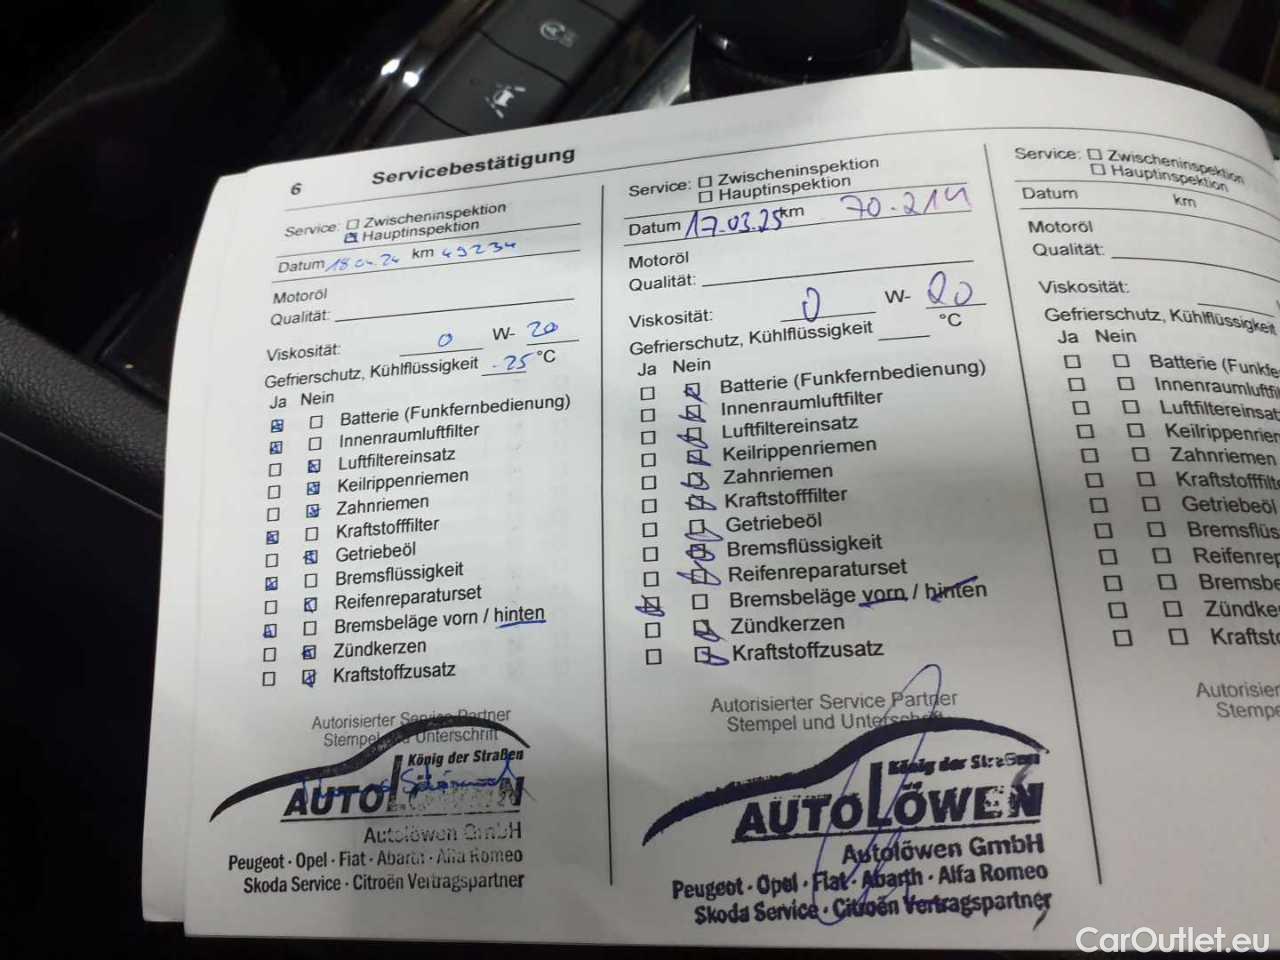 6 Servicebestätigung
Service: Zwischeninspektion
Hauptinspektion
Datum 18.04.24 km 49234
Motoröl
Qualität:
Viskosität: 0 W- 20
Gefrierschutz, Kühlflüssigkeit -25 °C
Ja Nein
Batterie (Funkfernbedienung)
Innenraumluftfilter
Luftfiltereinsatz
Keilrippenriemen
Zahnriemen
Kraftstofffilter
Getriebeöl
Bremsflüssigkeit
Reifenreparaturset
Bremsbeläge vorn / hinten
Zündkerzen
Kraftstoffzusatz
Autorisierter Service Partner
Stempel und Unterschrift
König der Straßen
AUTOLÖWEN
Autolöwen GmbH
Peugeot · Opel · Fiat · Abarth · Alfa Romeo
Skoda Service · Citroën Vertragspartner
Service: Zwischeninspektion
Hauptinspektion
Datum 17.03.25 km 70.214
Motoröl
Qualität:
Viskosität: 0 W- 20
Gefrierschutz, Kühlflüssigkeit °C
Ja Nein
Batterie (Funkfernbedienung)
Innenraumluftfilter
Luftfiltereinsatz
Keilrippenriemen
Zahnriemen
Kraftstofffilter
Getriebeöl
Bremsflüssigkeit
Reifenreparaturset
Bremsbeläge vorn / hinten
Zündkerzen
Kraftstoffzusatz
Autorisierter Service Partner
Stempel und Unterschrift
König der Straßen
AUTOLÖWEN
Autolöwen GmbH
Peugeot · Opel · Fiat · Abarth · Alfa Romeo
Skoda Service · Citroën Vertragspartner
Service: Zwischeninspektion
Hauptinspektion
Datum km
Motoröl
Qualität:
Viskosität:
Gefrierschutz, Kühlflüssigkeit
Ja Nein
Batterie (Funkfe
Innenraumluftfil
Luftfiltereinsat
Keilrippenrien
Zahnriemen
Kraftstofffilte
Getriebeöl
Bremsflüs
Reifenrep
Bremsbe
Zündke
Kraftsto
Autorisier
Stempe
CarOutlet.eu